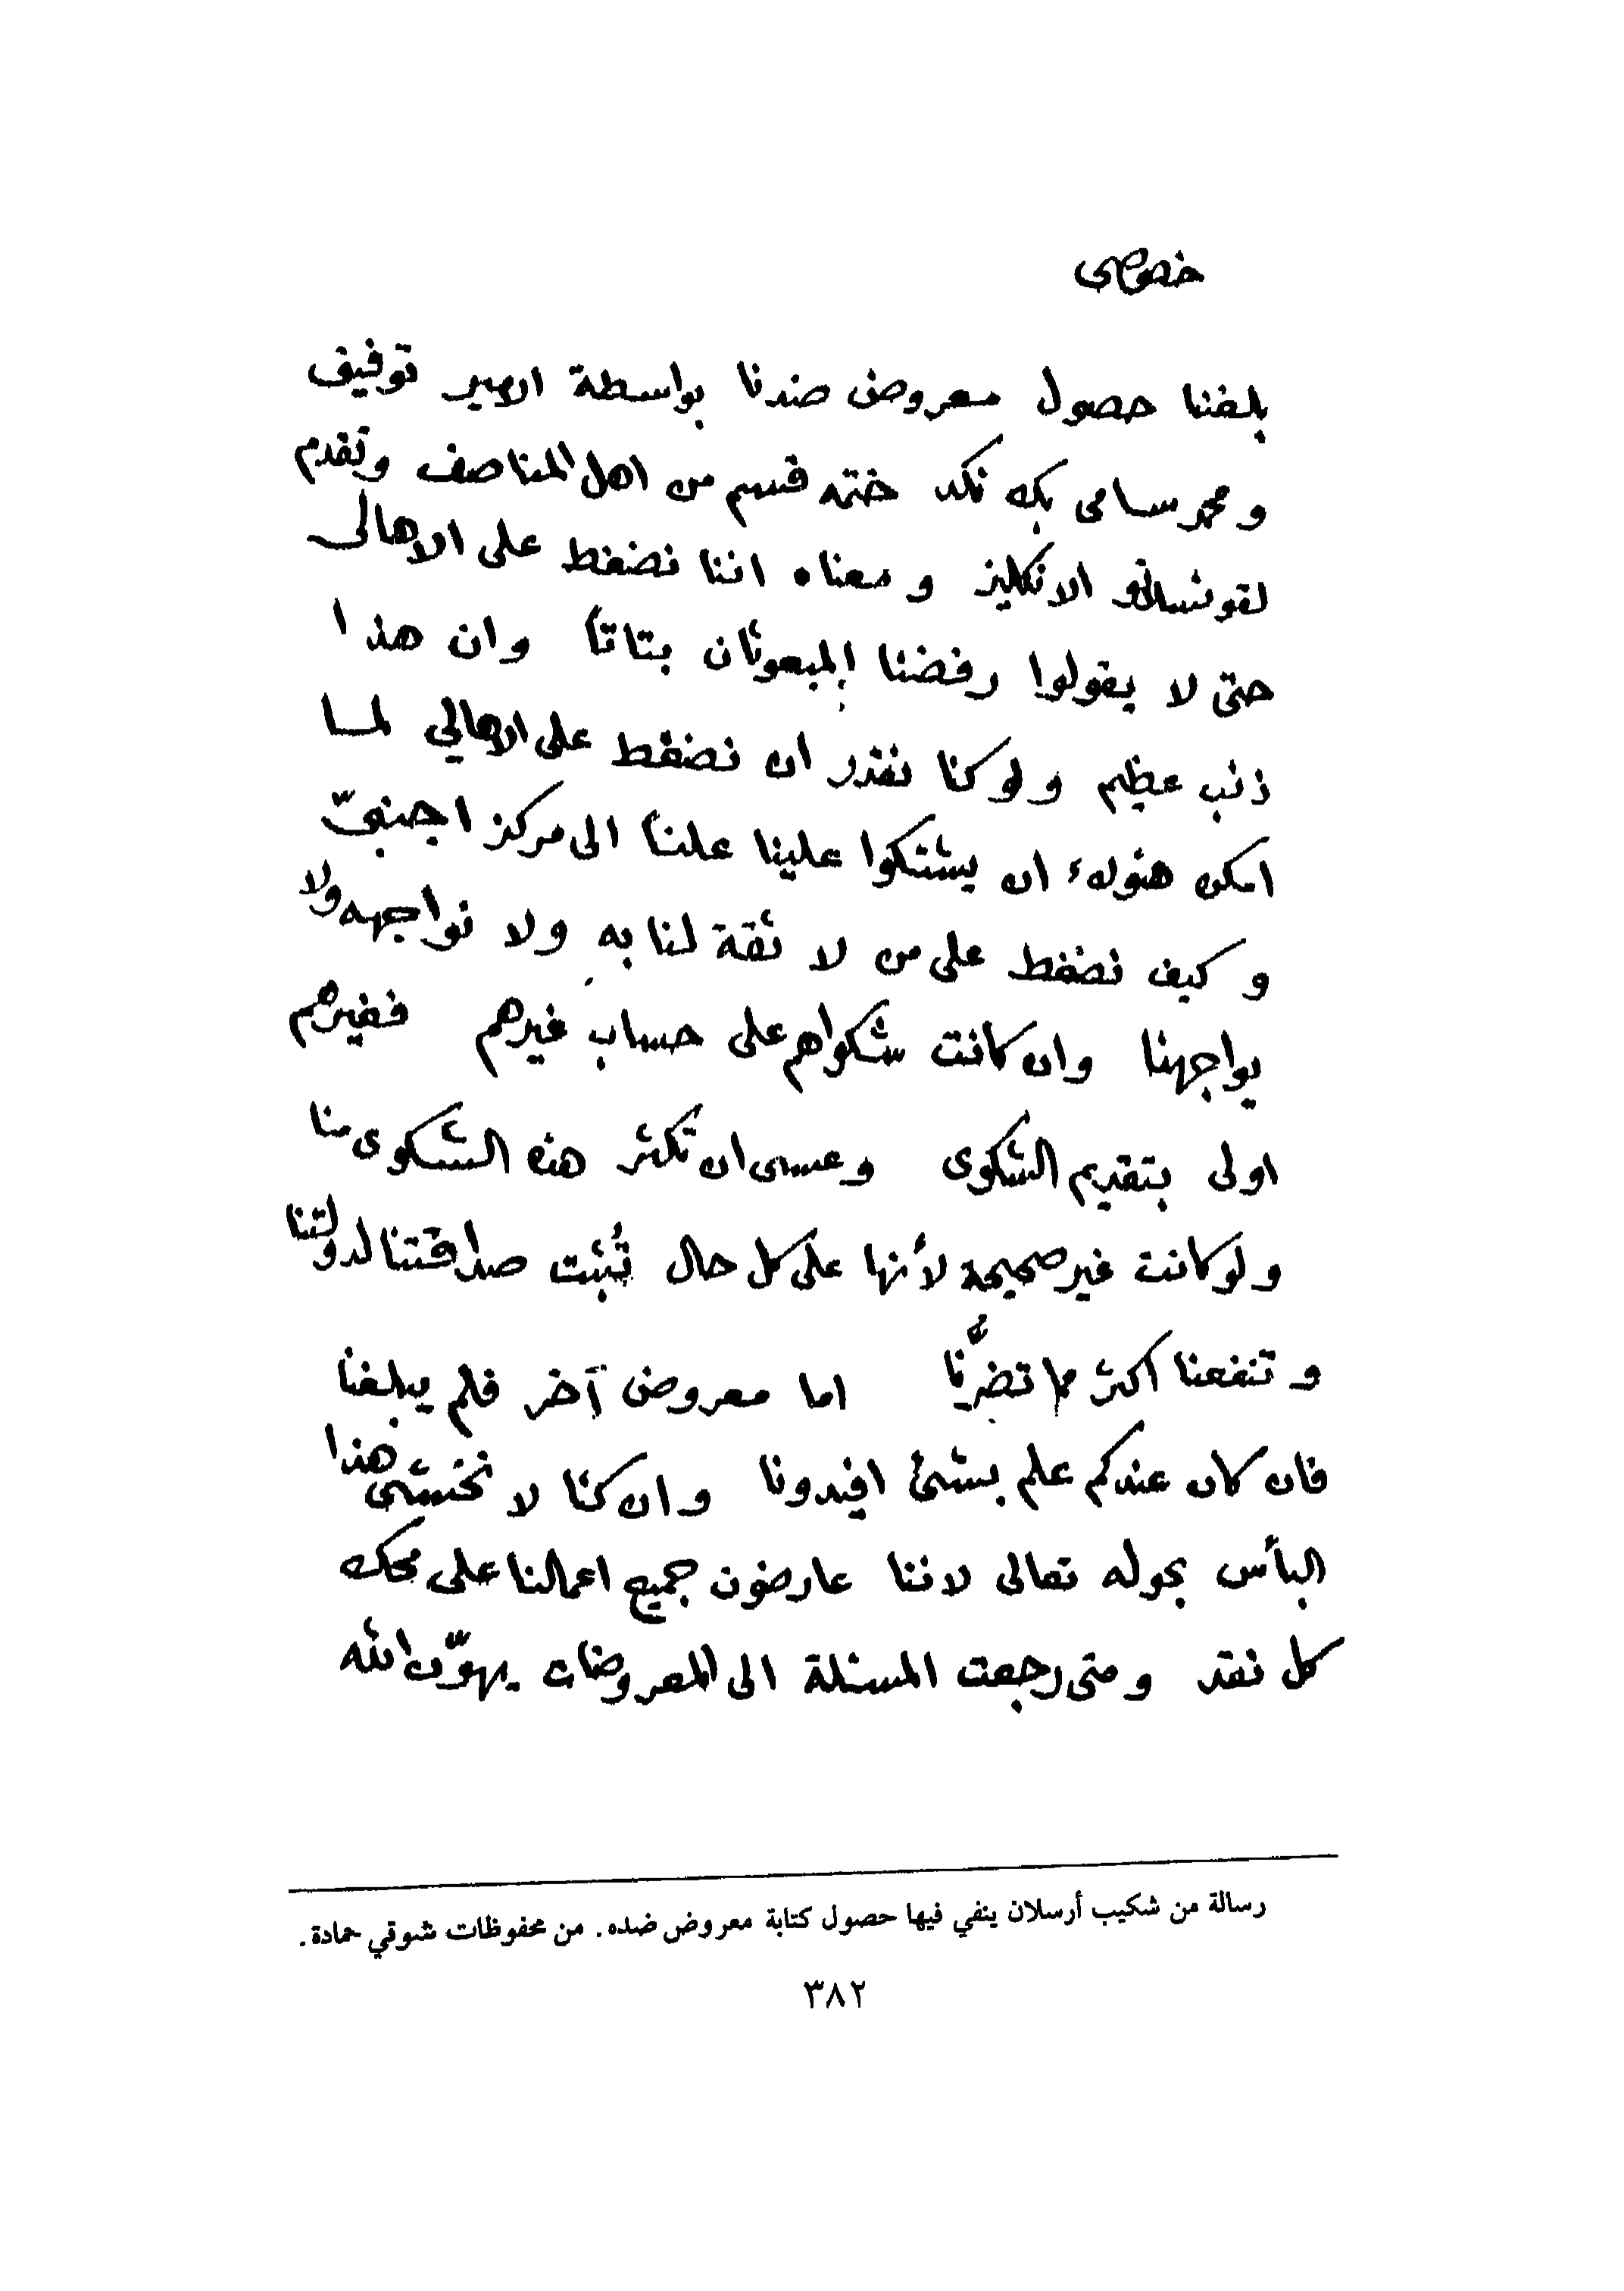 خصوصي
بلغنا حصول معروض ضدنا بواسطة الامير توفيق
و محمد سامي بك نكد ختمه قسم من اهل المناصف وتقدم
لقونسلاتو الانكليز و معناه اننا نضغط على الاهالي
حتى لا يقولوا رفضنا المبعوثان بتاتاً وان هذا
ذنب عظيم ولو كنا نقدر ان نضغط على الاهالي لما
امكن هئولاء ان يشتكوا علينا علناً الى مركز اجنبيّ
و كيف نضغط على من لا ثقة لنا به ولا نواجهه ولا
يواجهنا وان كانت شكواهم على حساب غيرهم فغيرهم
اولى بتقديم الشكوى وعسى ان تكثر هذه الشكوى منا
ولو كانت غير صحيحة لأنها على كل حال تُثبت صداقتنا لدولتنا
و تنفعنا اكثر مما تضرُّنا اما معروض آخر فلم يبلغنا
فان كان عندكم علم بشئ افيدونا وان كنا لا نخشى هذا
البأس بحوله تعالى لاننا عارضون جميع اعمالنا على محك
كل نقد ومتى رجعت المسئلة الى المعروضات يهوّن الله
رسالة من شكيب أرسلان ينفي فيها حصول كتابة معروض ضده. من محفوظات شوقي حمادة.
٣٨٢